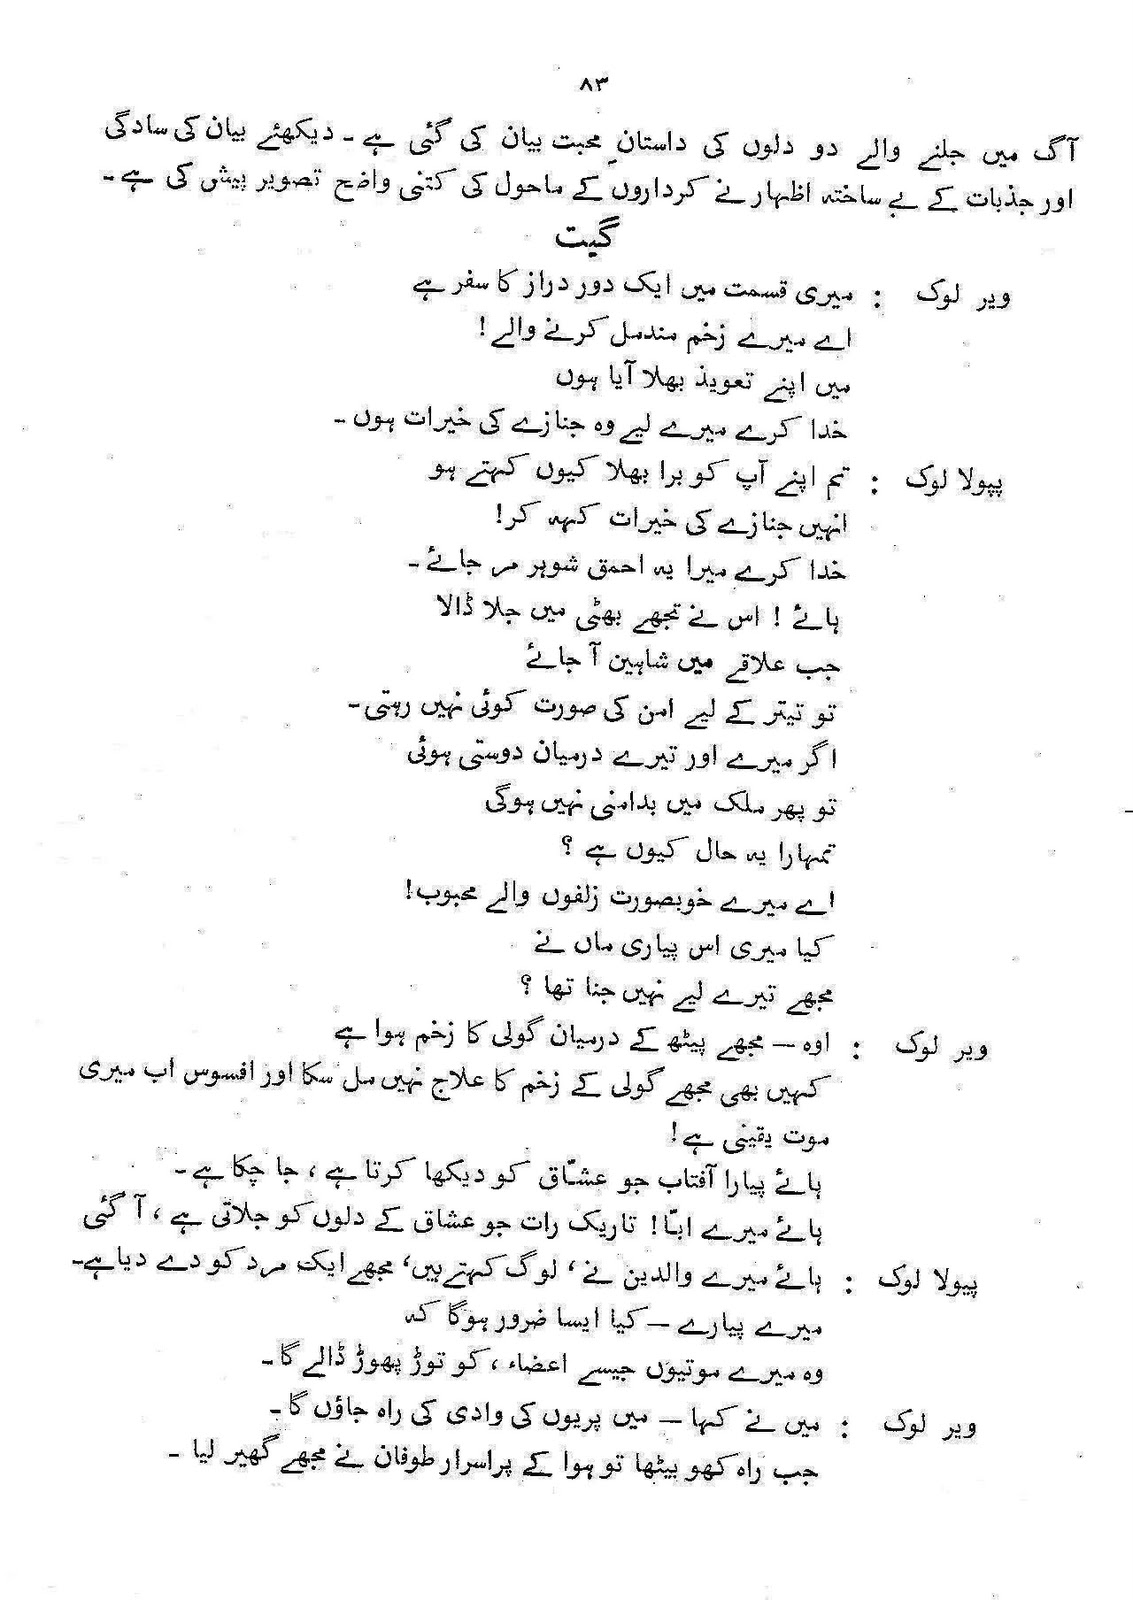 ۸۳
آگ میں جلنے والے دو دلوں کی داستانِ محبت بیان کی گئی ہے ۔ دیکھئے بیان کی سادگی
اور جذبات کے بے ساختہ اظہار نے کرداروں کے ماحول کی کتنی واضح تصویر پیش کی ہے ۔
گیت
ویر لوک : میری قسمت میں ایک دور دراز کا سفر ہے
اے میرے زخم مندمل کرنے والے !
میں اپنے تعویذ بھلا آیا ہوں
خدا کرے میرے لیے وہ جنازے کی خیرات ہوں ۔
پپولا لوک : تم اپنے آپ کو برا بھلا کیوں کہتے ہو
انہیں جنازے کی خیرات کہہ کر !
خدا کرے میرا یہ احمق شوہر مر جائے ۔
ہائے ! اس نے تجھے بھٹی میں جلا ڈالا
جب علاقے میں شاہین آ جائے
تو تیتر کے لیے امن کی صورت کوئی نہیں رہتی ۔
اگر میرے اور تیرے درمیان دوستی ہوئی
تو پھر ملک میں بدامنی نہیں ہوگی
تمہارا یہ حال کیوں ہے ؟
اے میرے خوبصورت زلفوں والے محبوب !
کیا میری اس پیاری ماں نے
مجھے تیرے لیے نہیں جنا تھا ؟
ویر لوک : اوہ — مجھے پیٹھ کے درمیان گولی کا زخم ہوا ہے
کہیں بھی مجھے گولی کے زخم کا علاج نہیں مل سکا اور افسوس اب میری
موت یقینی ہے !
ہائے پیارا آفتاب جو عشّاق کو دیکھا کرتا ہے ، جا چکا ہے ۔
ہائے میرے ابّا ! تاریک رات جو عشاق کے دلوں کو جلاتی ہے ، آ گئی
پیولا لوک : ہائے میرے والدین نے ، لوگ کہتے ہیں ، مجھے ایک مرد کو دے دیا ہے ۔
میرے پیارے — کیا ایسا ضرور ہوگا کہ
وہ میرے موتیوں جیسے اعضاء ، کو توڑ پھوڑ ڈالے گا ۔
ویر لوک : میں نے کہا — میں پریوں کی وادی کی راہ جاؤں گا ۔
جب راہ کھو بیٹھا تو ہوا کے پراسرار طوفان نے مجھے گھیر لیا ۔